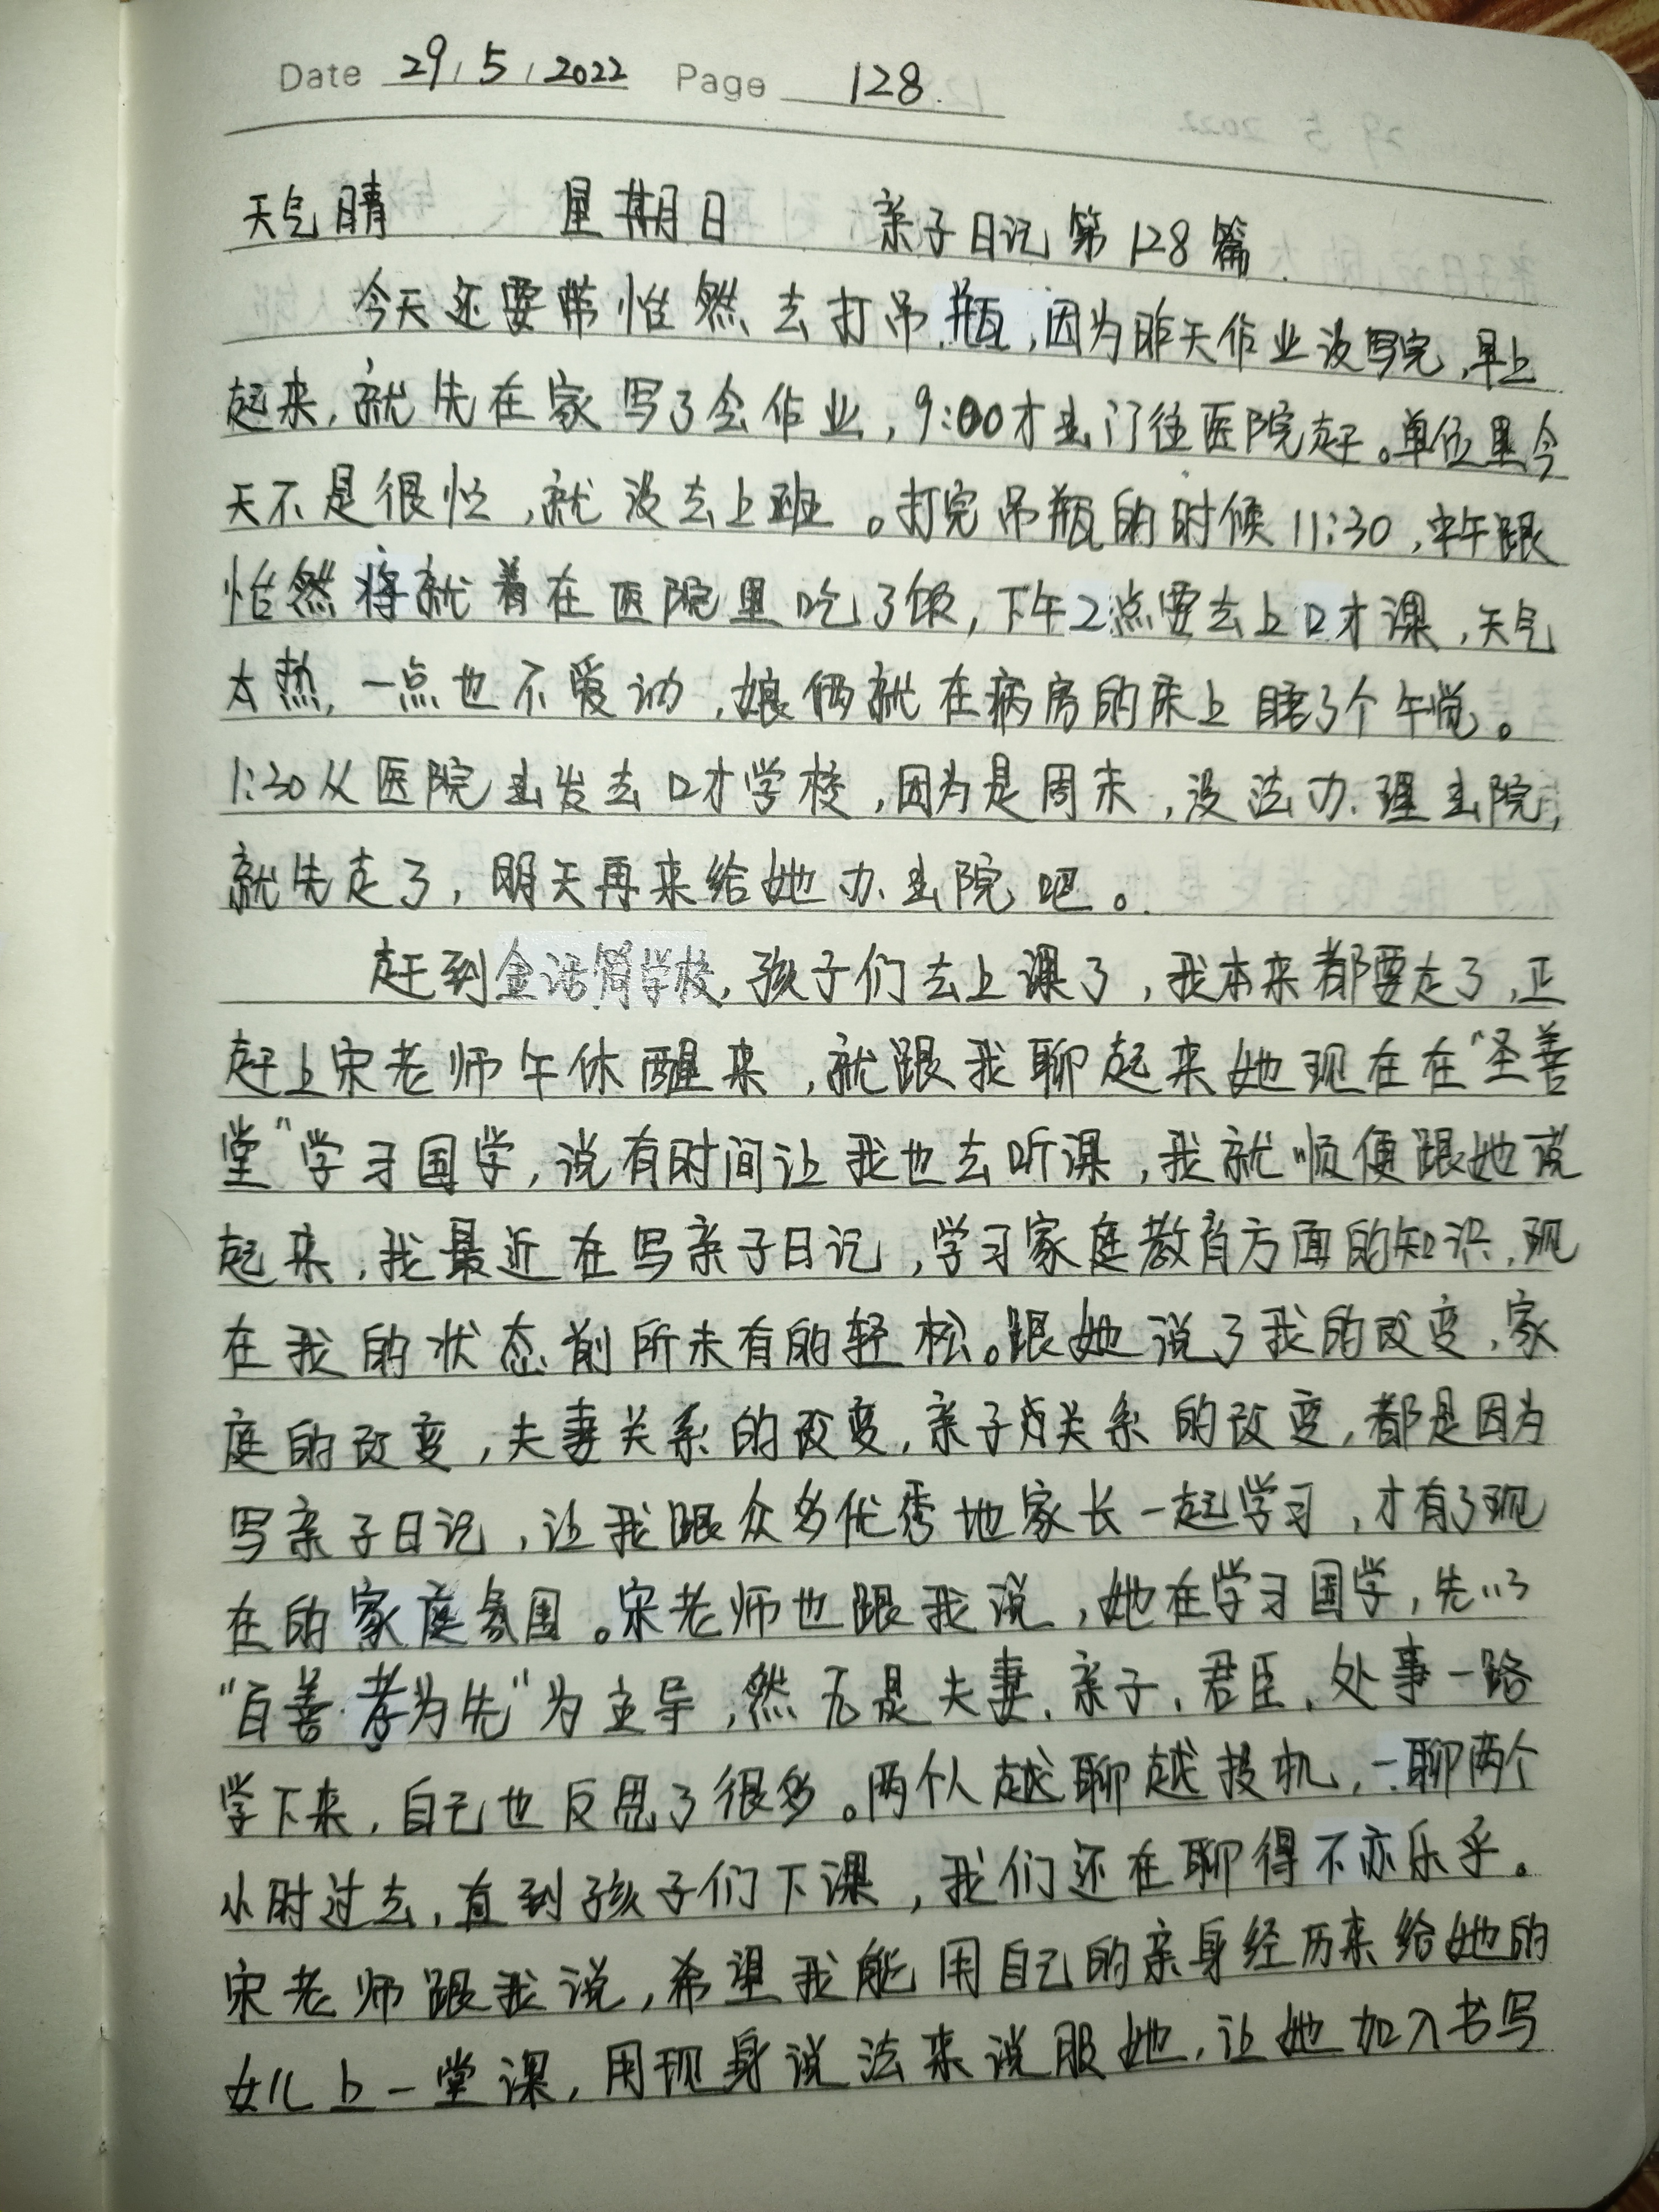 Date 29/5/2022 Page 128
天气晴 星期日 亲子日记第128篇
今天还要带怡然去打吊瓶,因为昨天作业没写完,早上
起来,就先在家写了会作业,9:00才出门往医院赶。单位里今
天不是很忙,就没去上班。打完吊瓶的时候11:30,中午跟
怡然将就着在医院里吃了饭,下午2点要去上口才课,天气
太热,一点也不爱动,娘俩就在病房的床上睡了个午觉。
1:30从医院出发去口才学校,因为是周末,没法办理出院,
就先走了,明天再来给她办出院吧。
赶到金话筒学校,孩子们去上课了,我本来都要走了,正
赶上宋老师午休醒来,就跟我聊起来她现在在“圣善
堂”学习国学,说有时间让我也去听课,我就顺便跟她说
起来,我最近在写亲子日记,学习家庭教育方面的知识,现
在我的状态前所未有的轻松。跟她说了我的改变,家
庭的改变,夫妻关系的改变,亲子关系的改变,都是因为
写亲子日记,让我跟众多优秀地家长一起学习,才有了现
在的家庭氛围。宋老师也跟我说,她在学习国学,先以
“百善孝为先”为主导,然无是夫妻、亲子、君臣、处事一路
学下来,自己也反思了很多。两个人越聊越投机,一聊两个
小时过去,直到孩子们下课,我们还在聊得不亦乐乎。
宋老师跟我说,希望我能用自己的亲身经历来给她的
女儿上一堂课,用现身说法来说服她,让她加入书写